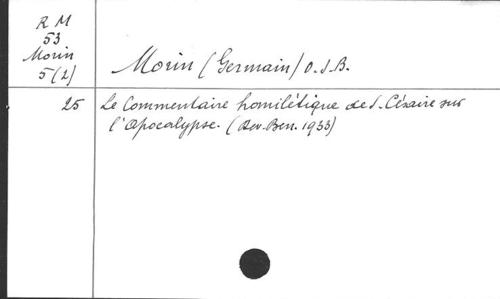 R M
53
Morin
5(2)
Morin (Germain) O.S.B.
25 Le Commentaire homilétique de S. Césaire sur
l'Apocalypse. (Rev. Ben. 1933)